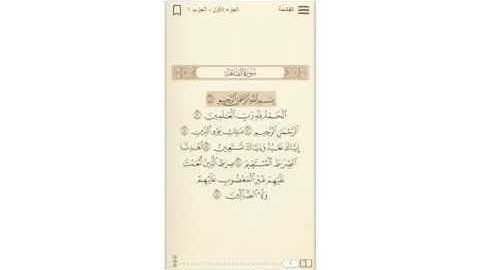 الفاتحة
الجزء الأول - الحزب ١
سورة الفاتحة
بسم الله الرحمن الرحيم
الحمد لله رب العالمين
الرحمن الرحيم ملك يوم الدين
إياك نعبد وإياك نستعين اهدنا
الصراط المستقيم صراط الذين أنعمت
عليهم غير المغضوب عليهم
ولا الضالين